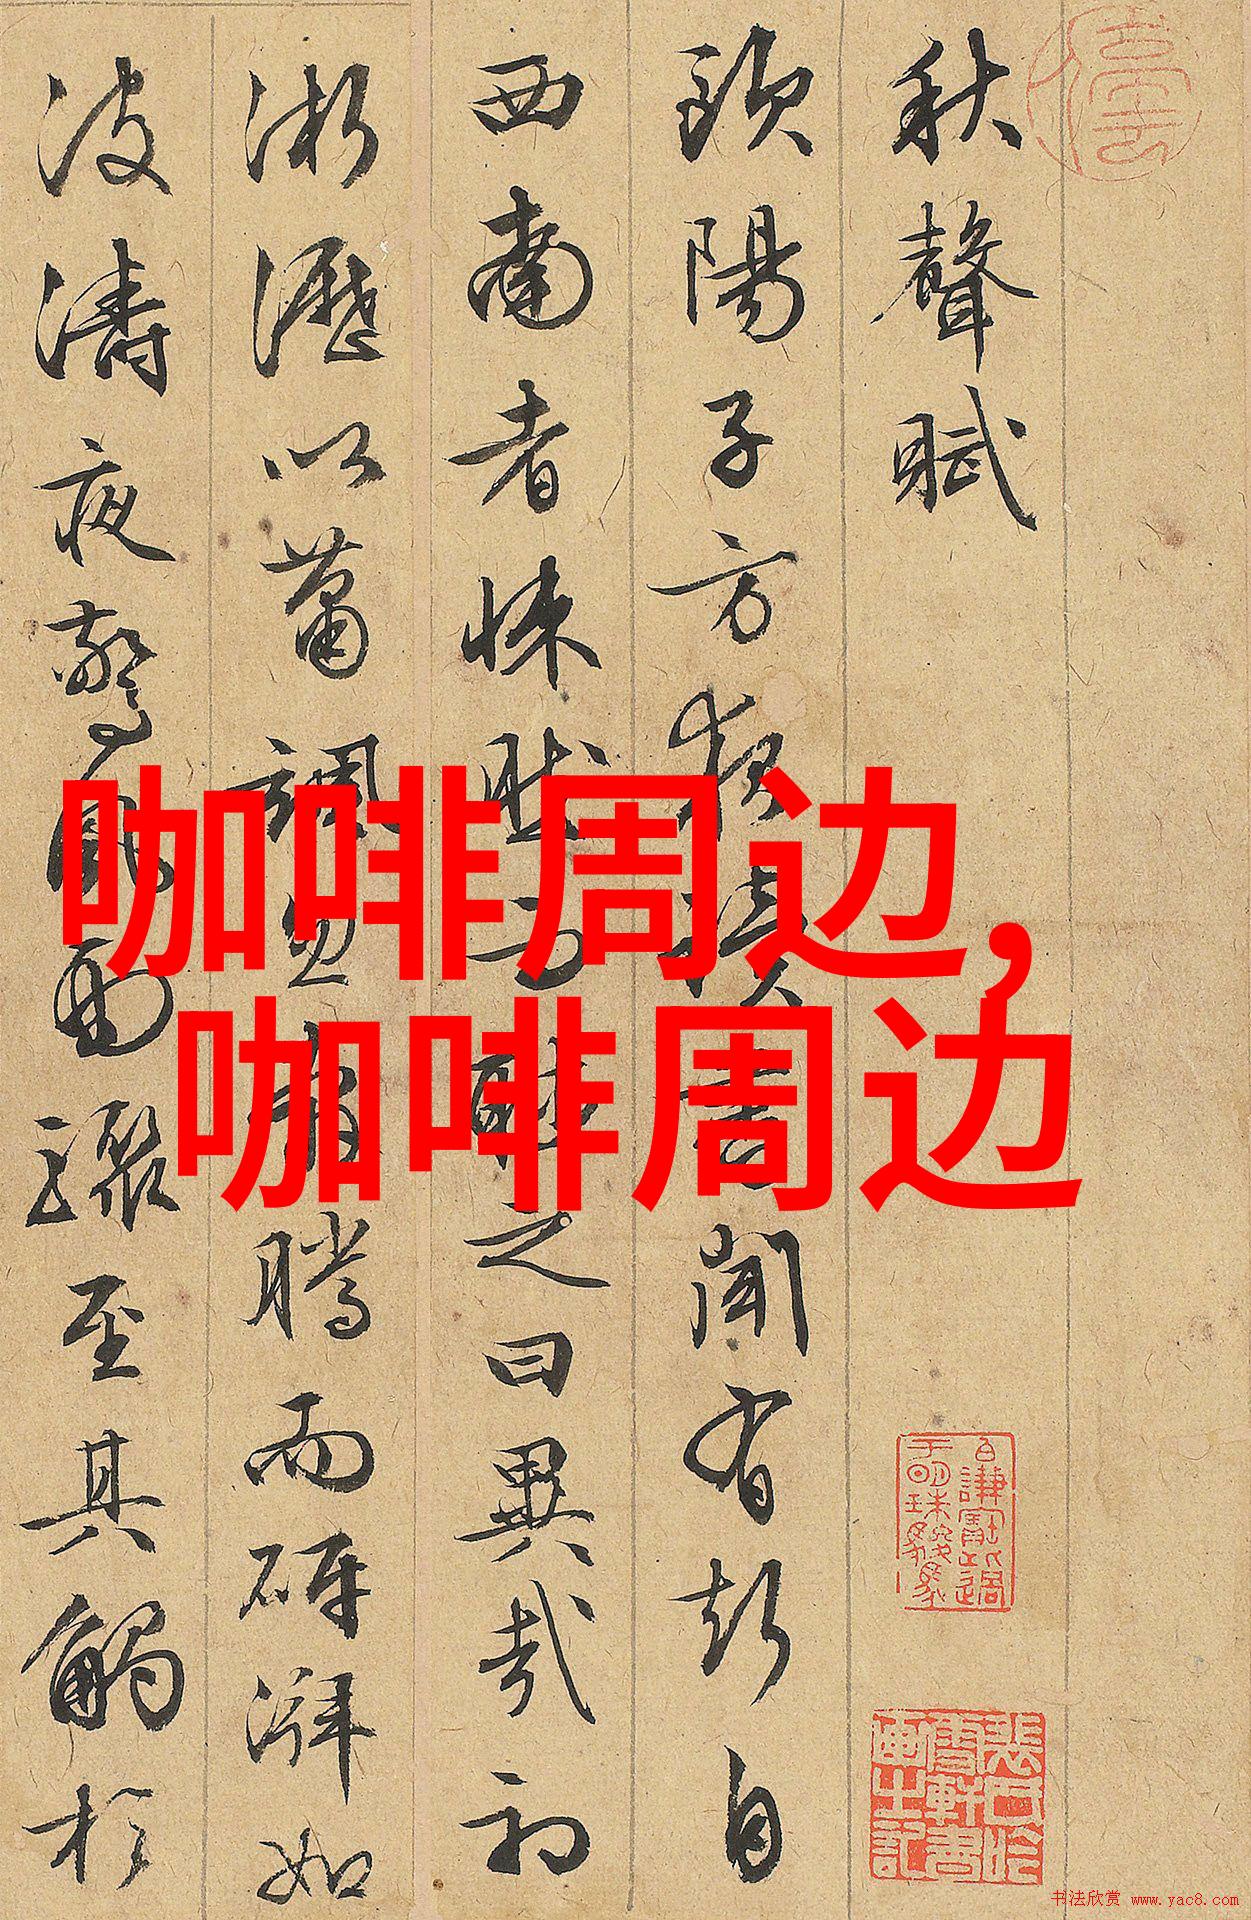 秋聲賦
歐陽子方夜讀書聞有聲自
西南者悚然而聽之曰異哉初
淅瀝以蕭颯忽奔騰而砰湃如
波濤夜驚風雨驟至其觸於
咖啡周边,
咖啡周边
书法欣赏 www.yac8.com